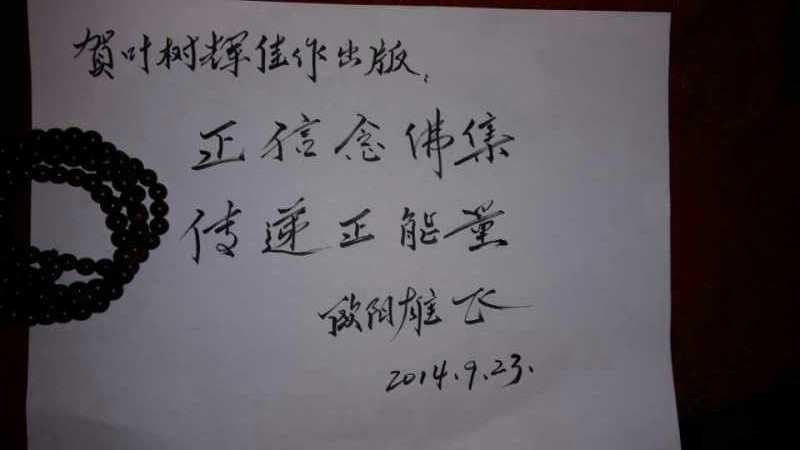 贺叶树辉佳作出版：
正信念佛集
传递正能量
欧阳雄飞
2014.9.23.